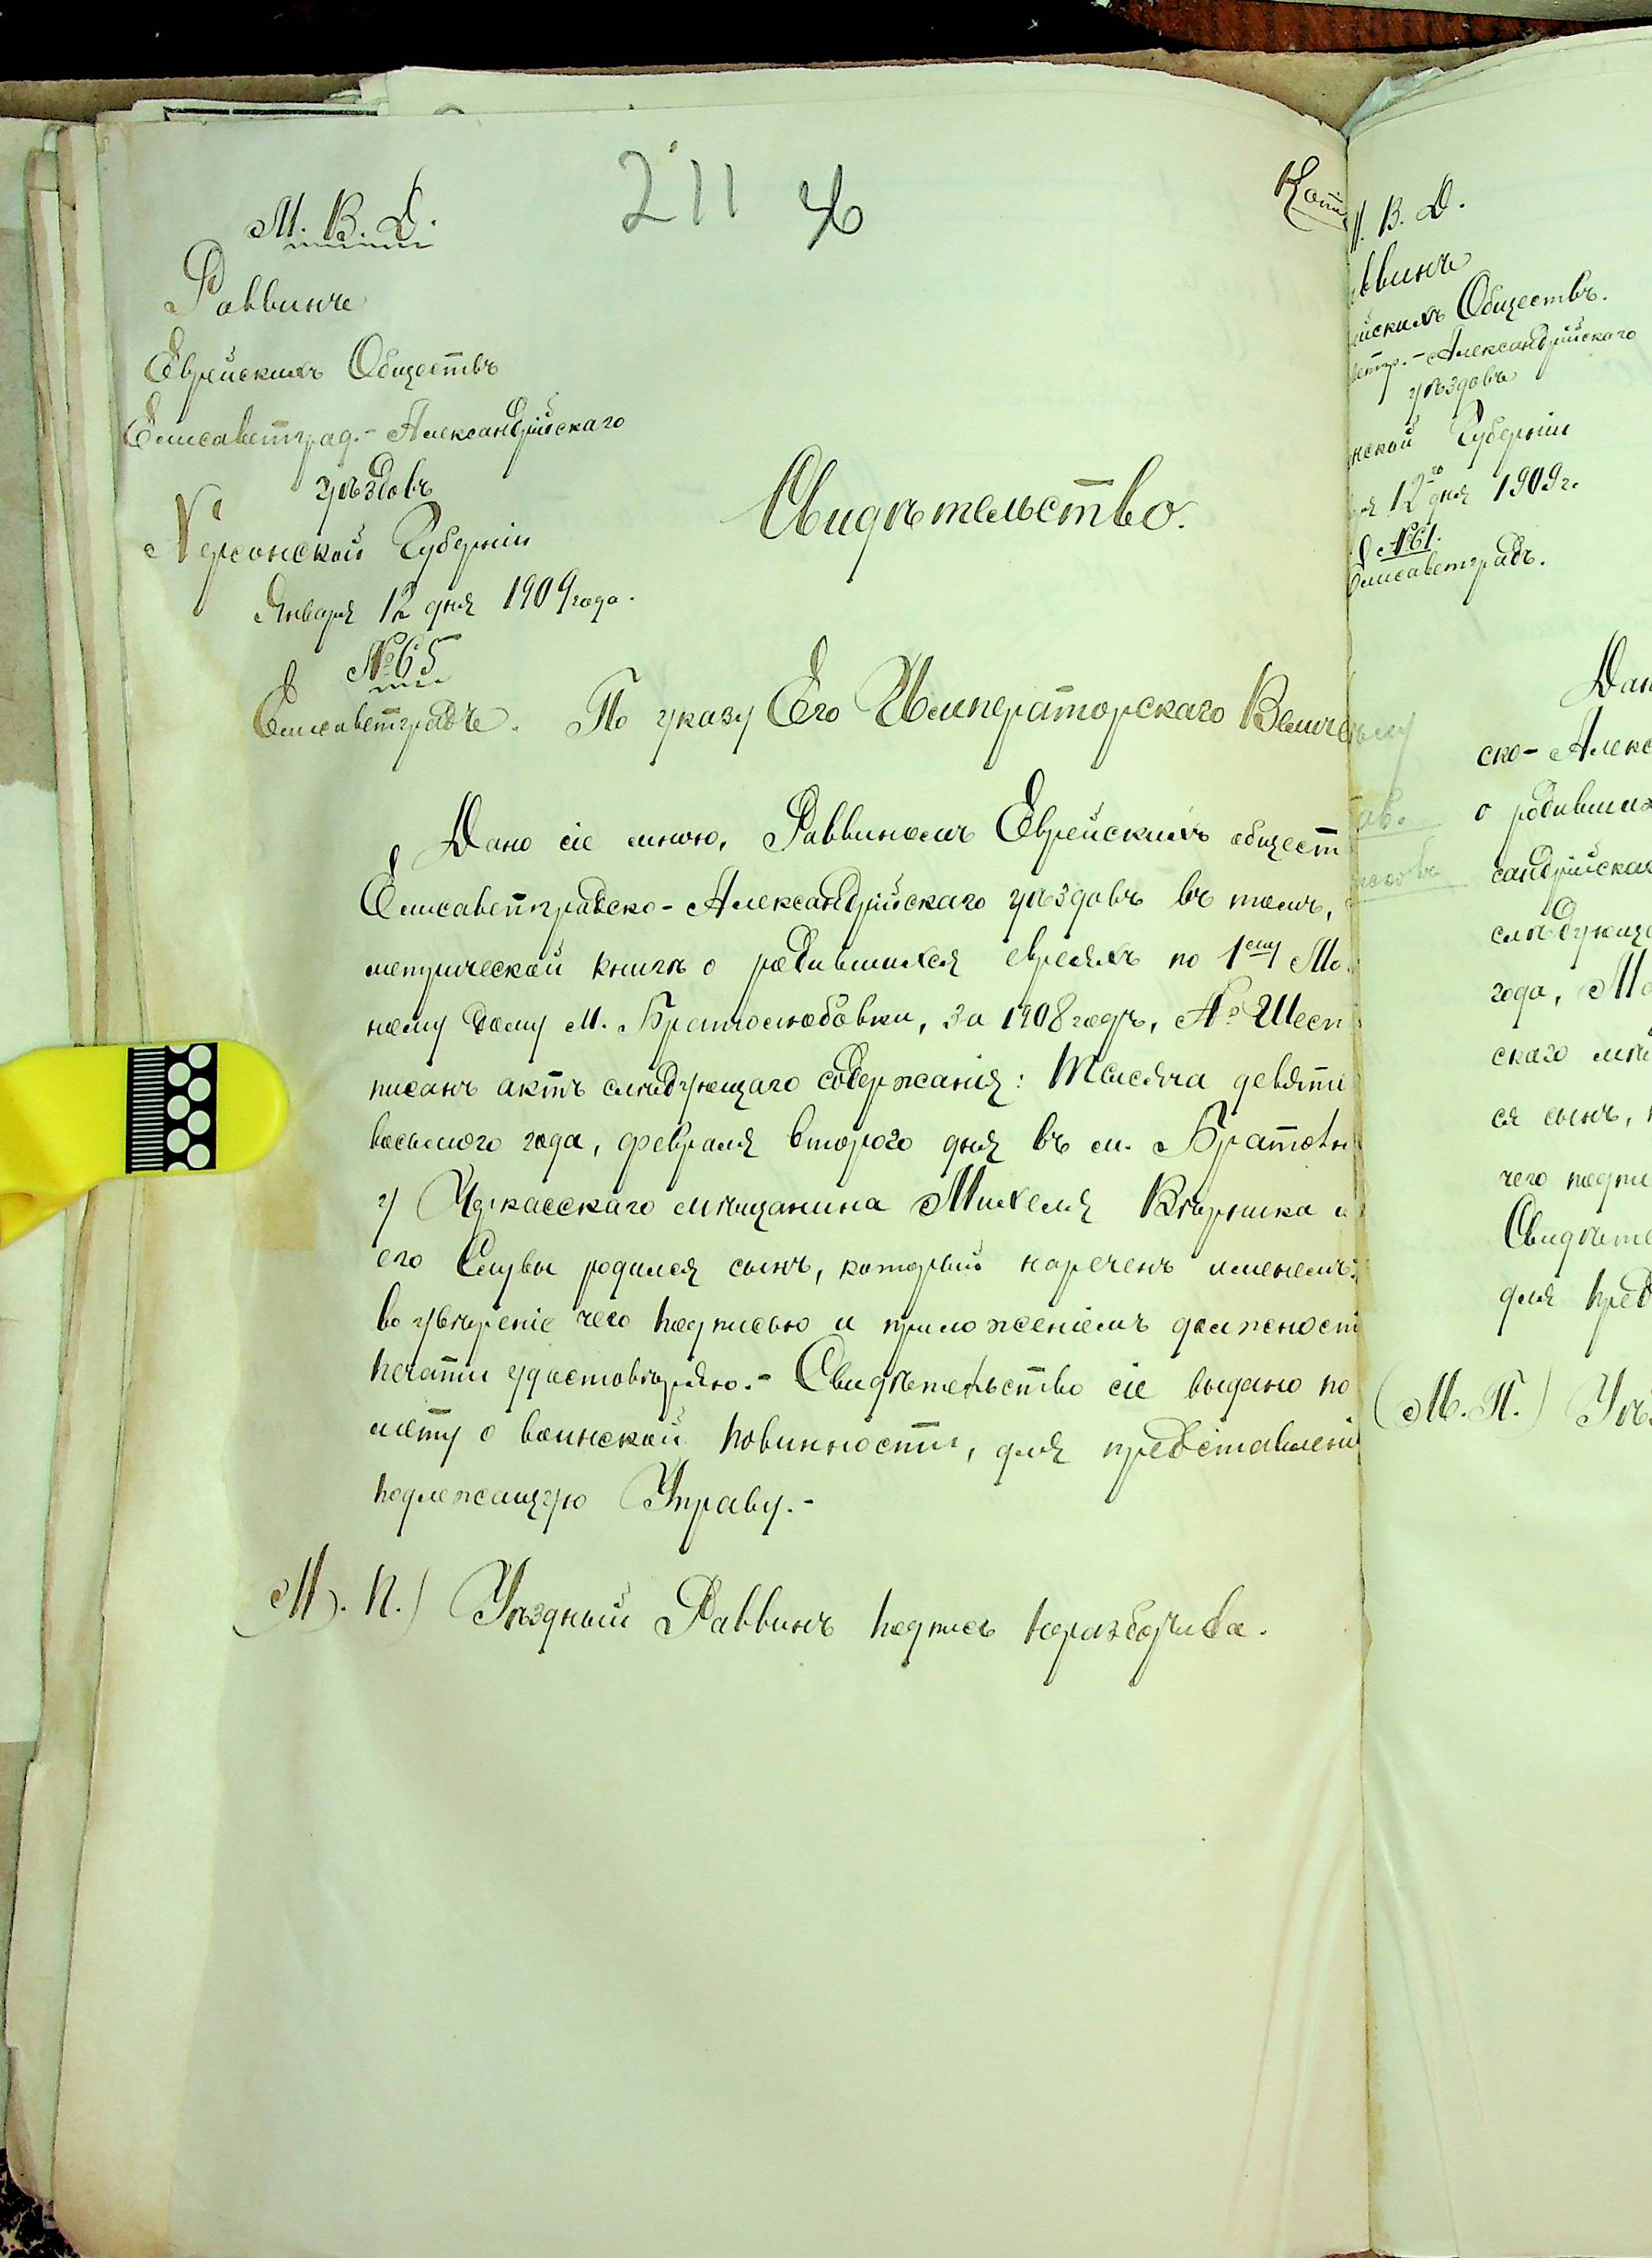 211 46
Копі
М. В. Д.
Раввинъ
Еврейскихъ Обществъ
Елисаветград.- Александрійскаго
уѣздовъ
Херсонской Губерніи
Января 12 дня 1909 года.
№ 65
Елисаветградъ.
Свидѣтельство.
По указу Его Императорскаго Величе
Дано сіе мною, Раввиномъ Еврейскихъ обществ
Елисаветградско-Александрійскаго уѣздовъ въ томъ,
метрической книгѣ о родившихся евреяхъ по 1ему Мо
ному дому М. Братолюбовки, за 1908 годъ, № Шест
писанъ актъ слѣдующаго содержанія: Тысяча девятьс
восьмого года, февраля второго дня въ м. Братолю
у Черкасскаго мѣщанина Михеля и
его родился сынъ, который нареченъ именемъ:
во увѣреніе чего подписью и приложеніемъ должност
печати удостовѣряю.- Свидѣтельство сіе выдано по
о воинской повинности, для представлені
подлежащую Управу.-
М. П.) Уѣздный Раввинъ подпись неразборчива.
М. В. Д.
ввинъ
йскихъ Обществъ.
ветгр.-Александрійскаго
уѣздовъ
нской Губерніи
ря 12го дня 1909 г.
№ 61.
Елисаветградъ.
Дан
ско-Алекс
о родивших
сандрійскаг
слѣдующе
года, Ма
скаго мѣщ
ся сынъ,
чего подпи
Свидѣте
для пред
(М. П.) Уѣз